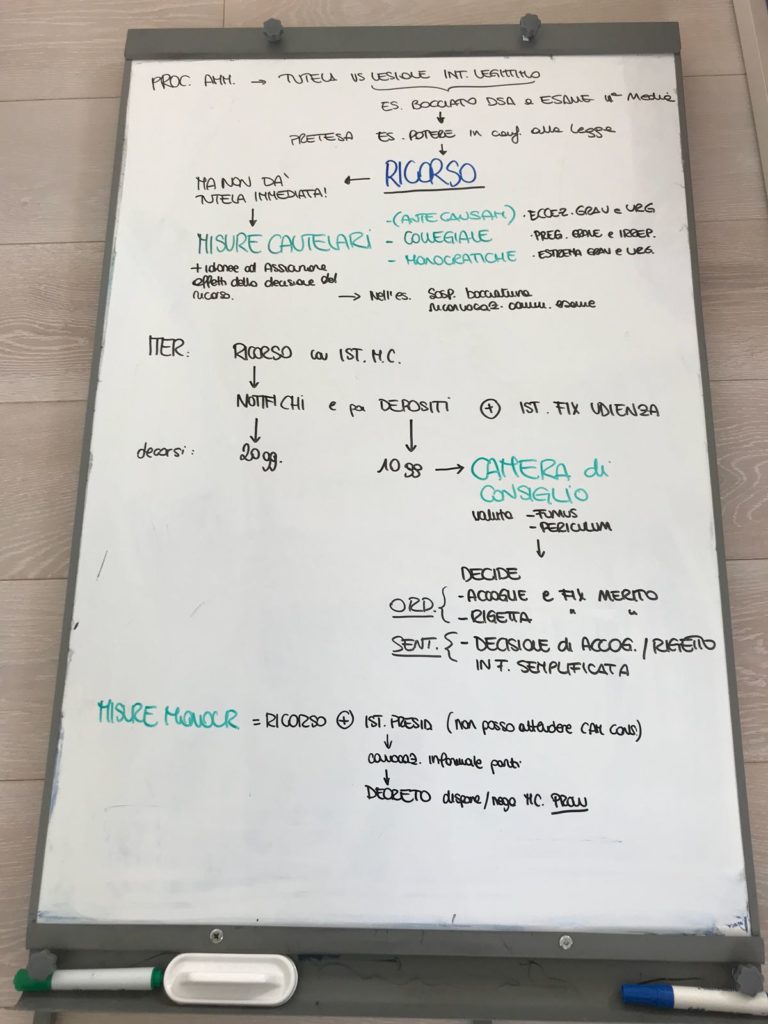 PROC. AMM. → TUTELA VS LESIONE INT. LEGITTIMO
ES. BOCCIATO DSA a ESAME Media
PRETESA ES. POTERE in conf. alla legge
MA NON DÀ ← RICORSO
TUTELA IMMEDIATA!
MISURE CAUTELARI
- (ANTE CAUSAM) · ECCEZ. GRAV e URG
- COLLEGIALE · PREG. GRAVE e IRREP.
- MONOCRATICHE · ESTREMA GRAV e URG.
+ idonee ad assicurare
effetti della decisione del
ricorso.
→ Nell'es. Sosp. bocciatura
riconvocaz. comm. esame
ITER: RICORSO con IST. M.C.
NOTIFICHI e poi DEPOSITI + IST. FIX UDIENZA
decorsi: 20 gg. 10 gg → CAMERA di
CONSIGLIO
valuta - FUMUS
- PERICULUM
DECIDE
ORD. { - ACCOGLIE e FIX MERITO
- RIGETTA " "
SENT. { - DECISIONE di ACCOG. / RIGETTO
IN F. SEMPLIFICATA
MISURE MONOCR = RICORSO + IST. PRESID (non posso attendere CAM CONS.)
convocaz. informale parti
DECRETO dispone/nega M.C. PROVV